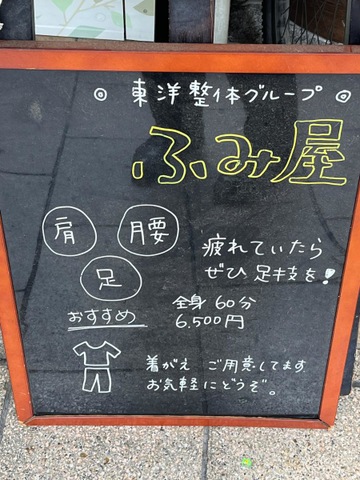 ◎ 東洋整体グループ ◎
ふみ屋
肩 腰
足
疲れていたら
ぜひ 足技を!
おすすめ
全身 60分
6,500円
着がえ ご用意してます
お気軽にどうぞ。